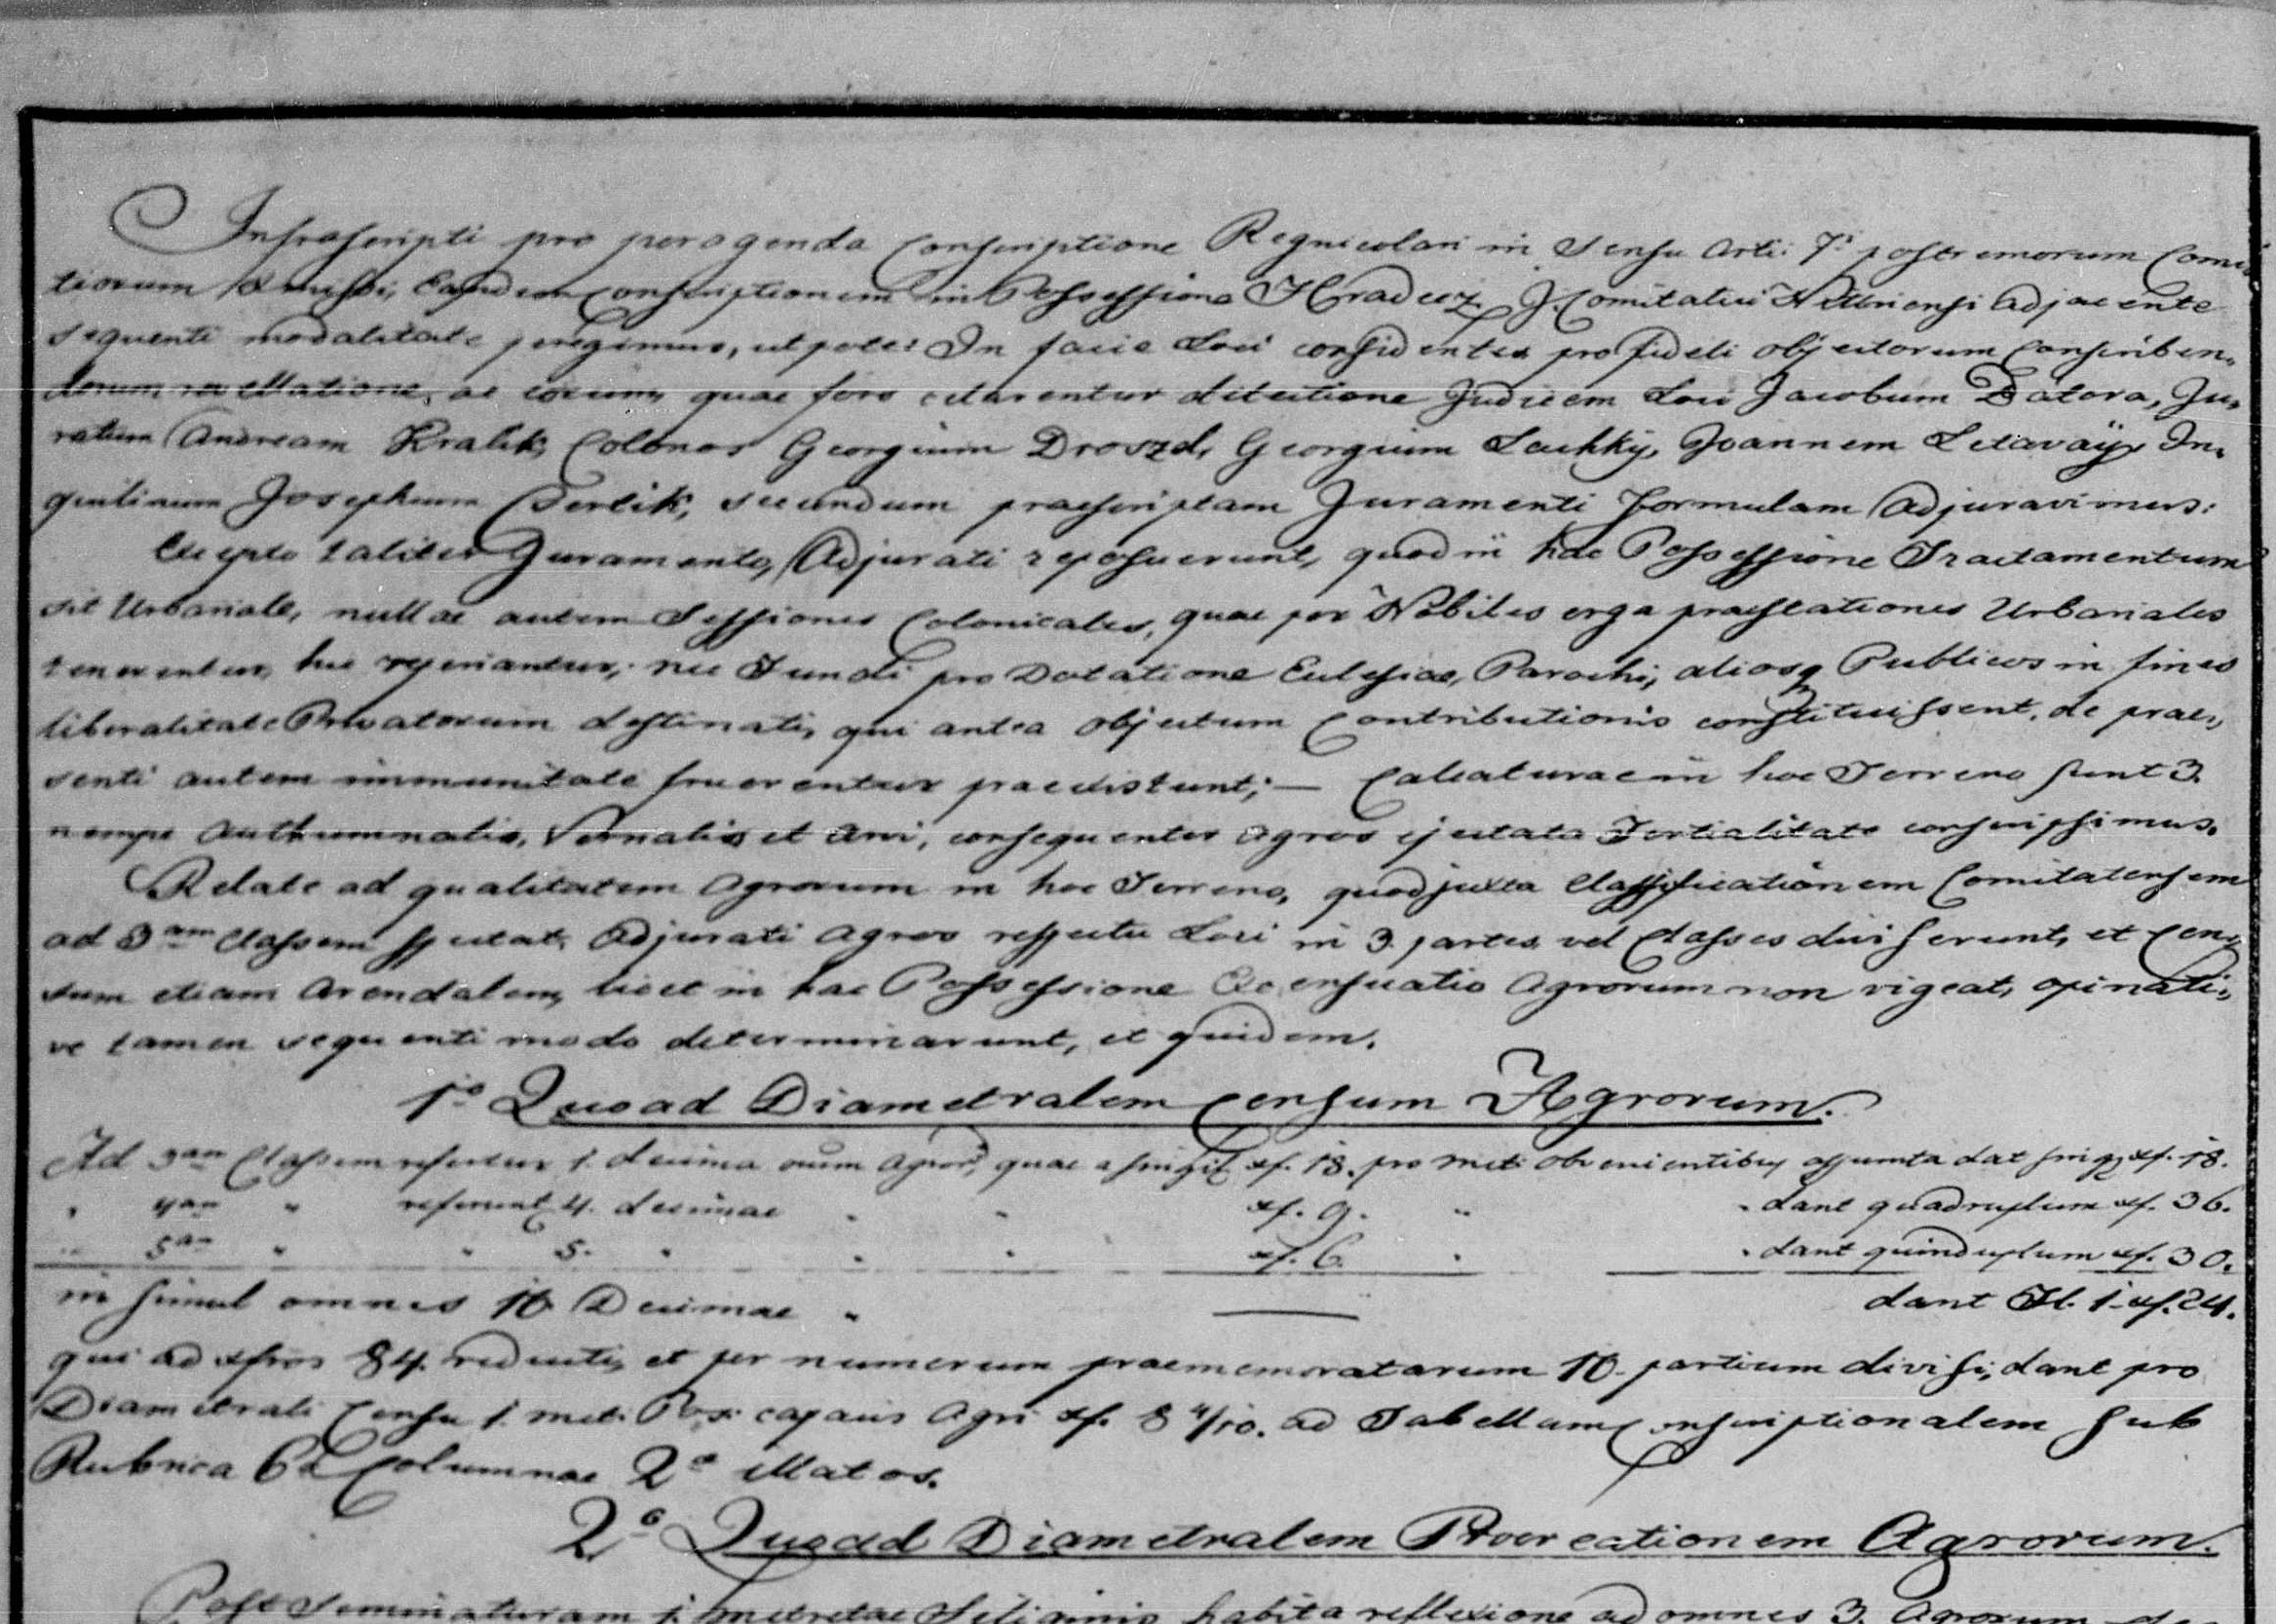 Infrascripti pro peragenda Conscriptione Regnicolari in Sensu Arti: 7i postremorum Comi
tiorum Emissi, Eandem Conscriptionem in Possessione Hradecz I. Comitatui Nittriensi Adjacente
sequenti modalitate peregimus, utpote: In facie Loci considentes pro fideli objectorum Conscriben,
dorum revelatione, ac eorum, quae foro citarentur detectione Judicem Loci Jacobum Datora, Ju,
ratum Andream Kralik, Colonos Georgium Drozd, Georgium Lachky, Joannem Letavaÿ, In,
quilinum Josephum Bertik, secundum praescriptam Juramenti Formulam Adjuravimus:
Excepto taliter Juramento, Adjurati reposuerunt, quod in hac Possessione Tractamentum
sit Urbariale, nullae autem Sessiones Colonicales, quae per Nobiles erga praestationes Urbariales
tenerentur, hic reperiantur, nec Fundi pro Dotatione Eclesiae, Parochi, aliosq Publicos in fines
liberalitate Privatorum destinati, qui antea objectum Contributionis constituissent, de prae,,
senti autem immunitate fruerentur praeexistunt; — Calcaturae in hoc Terreno sunt 3.
nempe Authumnalis, Vernalis et Arvi, consequenter Agros ejectata Tertialitate conscripsimus.
Relate ad qualitatem Agrorum in hoc Terreno, quod juxta Classificationem Comitatensem
ad 3am Classem spectat, Adjurati Agros respectu Loci in 3. partes vel Classes diviserunt, et Cen,
sum etiam Arendalem, licet in hac Possessione Exarendatio Agrorum non vigeat, opinati,
ve tamen sequenti modo determinarunt, et quidem.
1o Quoad Diametralem Censum Agrorum.
Ad 3am Classem refertur 1. decima Agror, quae a singil xf. 18. pro meti obvenientibus assumta dat xf. 18.
" 4am " referunt 4. decimae " " xf. 9. " " dant quadruplum xf. 36.
" 5am " " 5. " " " xf. 6. " " dant quinduplum xf. 30.
in simul omnes 10 Decimae " — dant Fl. 1 xf. 24.
qui ad xfros 84. reducti, et per numerum praememoratarum 10. partium divisi, dant pro
Diametrali Censu 1. met: Pos: capacis Agri xf. 8 4/10. ad Tabellam Conscriptionalem sub
Rubrica 6a Columnae 2a illatos.
2o Quoad Diametralem Procreationem Agrorum.
Post Seminaturam 1. metretae Siliginis habita reflexione ad omnes 3. Agrorum